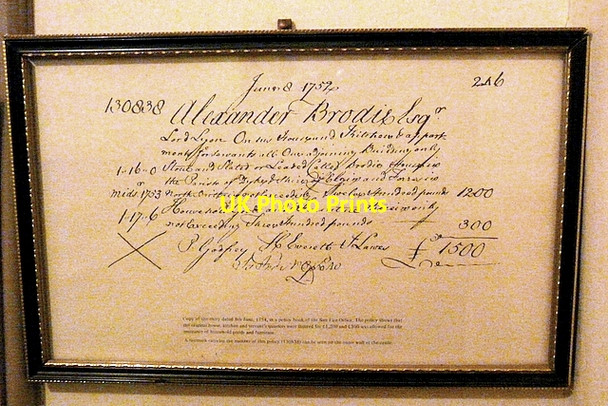 June 8 1754 246
130838 Alexander Brodie Esqr
Lord Lyon On his House and Kitchen & apart
ments for servants all One adjoining Building only
1-16-0 Stone and Slated or Leaded Called Brodie House in
the Parish of Elgin and
mids 1753 North Britain not exceeding Twelve Hundred pounds 1200
1-17-6 Household only
not exceeding Three Hundred pounds 300
P. Godfrey H. Everett £ 1500
UK Photo Prints
Copy of an entry dated 8th June, 1754, in a policy book of the Sun Fire Office. The policy shows that
the original house, kitchen and servant's quarters were insured for £1,200 and £300 was allowed for the
insurance of household goods and furniture.
A firemark carrying the number of this policy (130838) can be seen on the